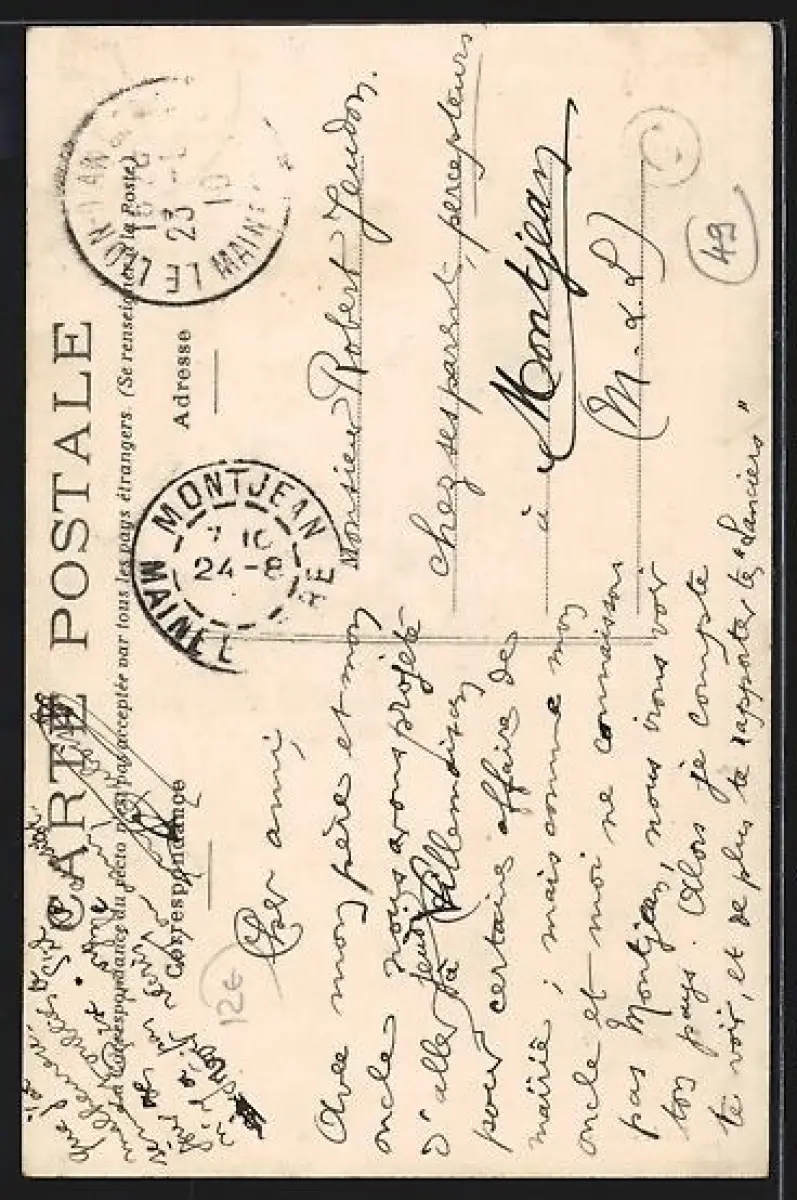 CARTE POSTALE
La Correspondance du recto n'est pas acceptée par tous les pays étrangers. (Se renseigner à la Poste)
Correspondance
Adresse
LE LION-D'AN
23
10
MAINE
MONTJEAN
7 10
24-8
MAINE
RE
Monsieur Robert Jeudon.
chez ses parents, percepteurs
à Montjean
(M.&L)
49
12€
Cher ami,
Avec mon père et mon
oncle nous avons projeté
d'aller jeudi
à Villemoisan
pour certaine affaire de
mairie; mais comme mon
oncle et moi ne connaissons
pas Montjean, nous irons voir
ton pays. Alors je compte
te voir, et de plus te rapporter tes "Lanciers"
que j'ai